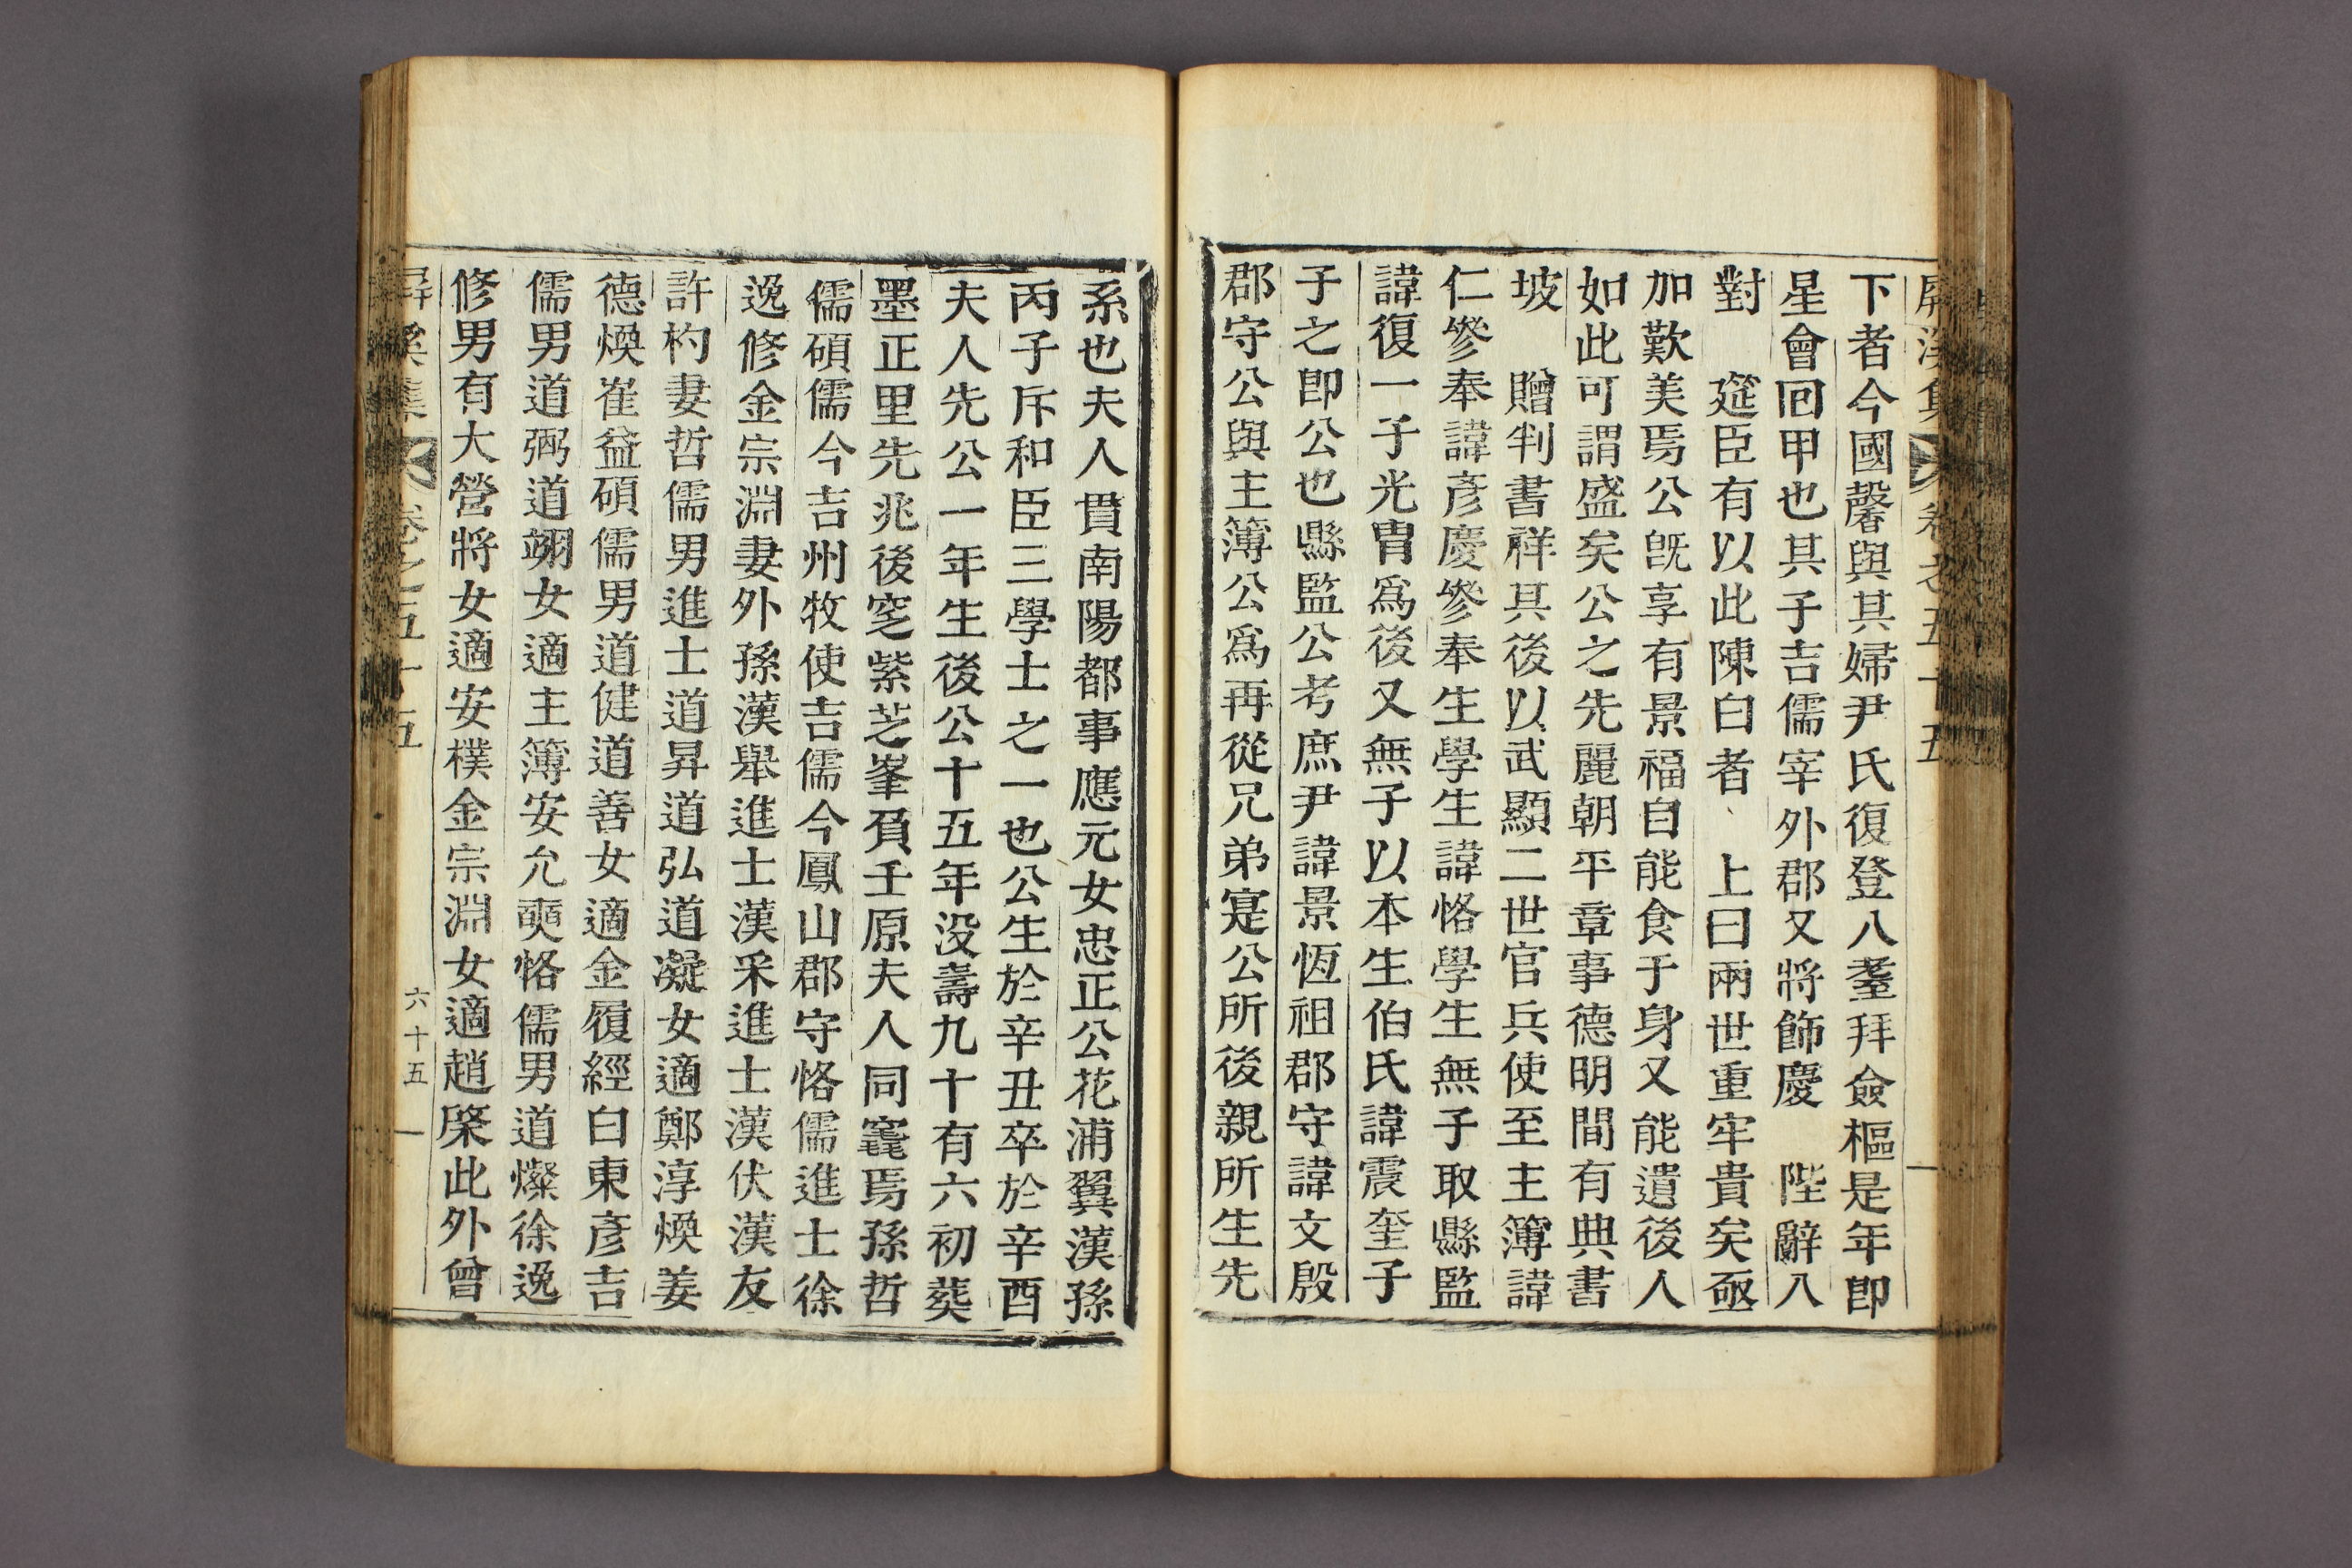 屛溪集 卷之五十五
下者今國馨與其婦尹氏復登八耋拜僉樞是年卽
星會回甲也其子吉儒宰外郡又將飾慶 陛辭入
對 筵臣有以此陳白者 上曰兩世重牢貴矣亟
加歎美焉公旣享有景福自能食于身又能遺後人
如此可謂盛矣公之先麗朝平章事德明間有典書
坡 贈判書祥其後以武顯二世官兵使至主簿諱
仁叅奉諱彦慶叅奉生學生諱恪學生無子取縣監
諱復一子光胄爲後又無子以本生伯氏諱震奎子
子之卽公也縣監公考庶尹諱景恆祖郡守諱文殷
郡守公與主簿公爲再從兄弟寔公所後親所生先
系也夫人貫南陽都事應元女忠正公花浦翼漢孫
丙子斥和臣三學士之一也公生於辛丑卒於辛酉
夫人先公一年生後公十五年没壽九十有六初葬
墨正里先兆後窆紫芝峯負壬原夫人同窀焉孫哲
儒碩儒今吉州牧使吉儒今鳳山郡守恪儒進士徐
逸修金宗淵妻外孫漢舉進士漢采進士漢伏漢友
許杓妻哲儒男進士道昇道弘道凝女適鄭淳煥姜
德煥崔益碩儒男道健道善女適金履經白東彦吉
儒男道弼道翊女適主簿安允奭恪儒男道燦徐逸
修男有大營將女適安樸金宗淵女適趙棨此外曾
屛溪集 卷之五十五 六十五